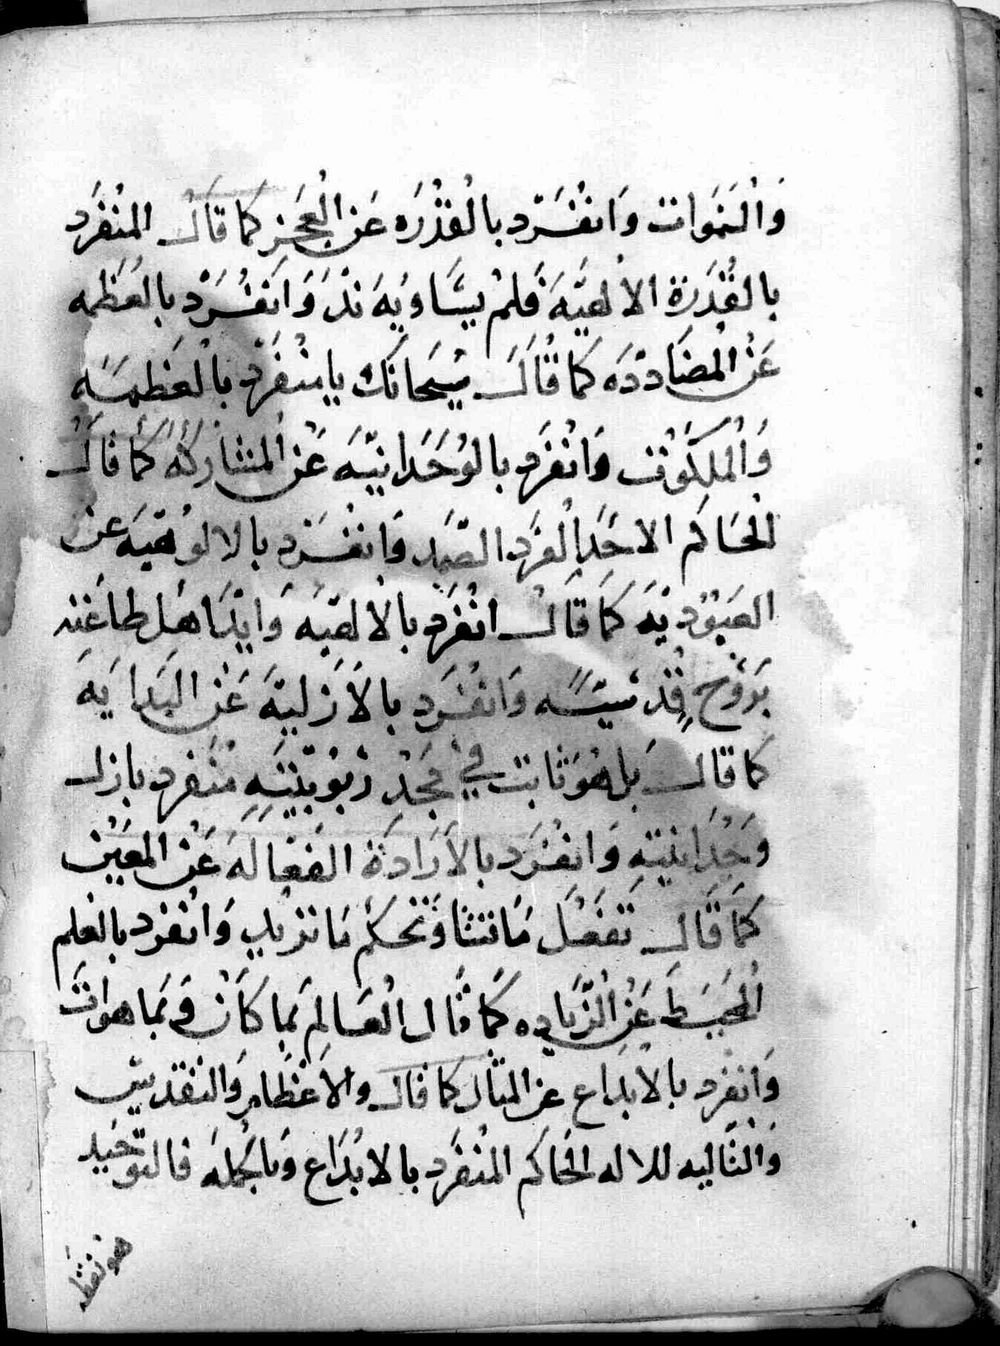 وَالسَمَوات وَانفَرَد بالقُدْرَه عَن العَجَز كما قالَ المنْفَرَد
بالقُدَرة الالهيَّه فَلمْ يسَّاويَه نَدَ وَانفَرَدْ بالعَظَمه
عَنْ المضَادَدَه كما قَالَ سُبحَانَك يا منْفَرَد بالعَظَمَه
وَالملَكوَت وَانْفَرَد بالوُحَدَانيَّه عَنْ المشَاركَه كما قَالَ
الحَاكم الاحَد الفَرَد الصَّمَد وَانفَرَد بالالوُهيَّه عن
العَبْوديَه كَمَا قَالَ انْفَرَد بالالهيَه وَايَّدَ اهَل طَاعَته
بَروُحٍ قُدسيَّه وَانفَرَد بالاَزَليَّة عَنْ البَدايَه
كما قال بَل هُوَ ثابت في مَجْدِ رَبُوْبيّتِهِ مُنفَرد بازل
وَحْدَانيته وَانفَرَد بالاَرَادَة الفَعَالهَ عَنْ المعَيْن
كَمَا قَالَ تَفعَل مَا تشَا وَتحكم مَا تريد وَانفرد بالعلم
المحيَط عَنْ الزَّيَاده كمَا قَال العَالم بَما كَانَ وَبمَا هوات
وَانفرَد بالابدَاع عن المثَال كما قال والاعْظَام وَالتقديس
وَالتَاليه للاله الحَاكم المنْفرَد بالابْدَاع وَبالجُمله فالتوحَيد
هو نفى